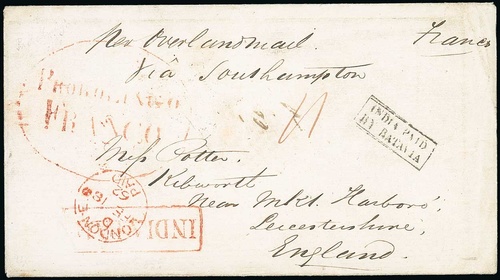 Per Overland mail.
Franco
Viâ Southampton
PROBOLINGO
FRANCO
INDIA PAID
BY BATAVIA
Miss Potter.
Kibworth
Near Mkt. Harboro',
Leicestershire,
England.
LONDON
PAID
INDI